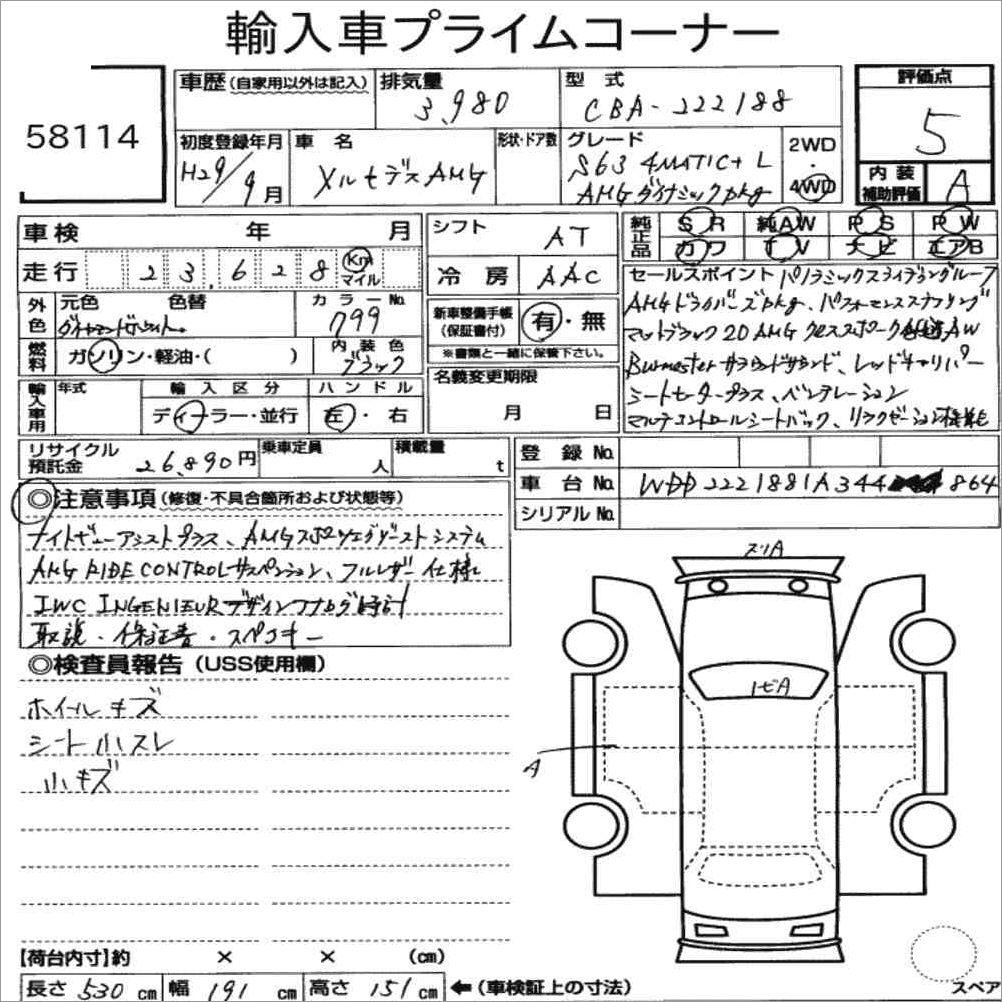 輸入車プライムコーナー
58114
車歴 (自家用以外は記入) 排気量 3,980 型式 CBA-222188
評価点 5
初度登録年月 H29/9月 車名 メルセデスAMG 形状・ドア数 グレード S63 4MATIC+ L AMGダイナミックpkg 2WD・4WD
内装補助評価 A
車検 年 月 シフト AT 純正品 SR 純AW PS PW
走行 23,628 Km マイル 冷房 AAC カワ TV ナビ エアB
外色 元色 色替 カラーNo. 799
ダイヤモンドホワイト
新車整備手帳(保証書付) 有・無
※書類と一緒に保管下さい。
燃料 ガソリン・軽油・( ) 内装色 ブラック
輸入車用 年式 輸入区分 ディーラー・並行 ハンドル 左・右
名義変更期限 月 日
セールスポイント パノラミックスライディングルーフ
AMGドライバーズpkg、パフォーマンスステアリング
マットブラック20AMGクロススポーク鍛造AW
Burmesterサラウンドサウンド、レッドキャリパー
シートヒータープラス、ベンチレーション
マルチコントロールシートバック、リラクゼーション機能
リサイクル預託金 26,890円 乗車定員 人 積載量 t
登録No.
車台No. WDD2221881A344 864
シリアルNo.
◎注意事項 (修復・不具合箇所および状態等)
ナイトビューアシストプラス、AMGスポーツエグゾーストシステム
AMG RIDE CONTROLサスペンション、フルレザー仕様
IWC INGENIEURデザインアナログ時計
取説・保証書・スペアキー
◎検査員報告 (USS使用欄)
ホイールキズ
シート小スレ
小キズ
スリA
トビA
A
【荷台内寸】約 × × (cm)
長さ 530 cm 幅 191 cm 高さ 151 cm ←(車検証上の寸法)
スペア